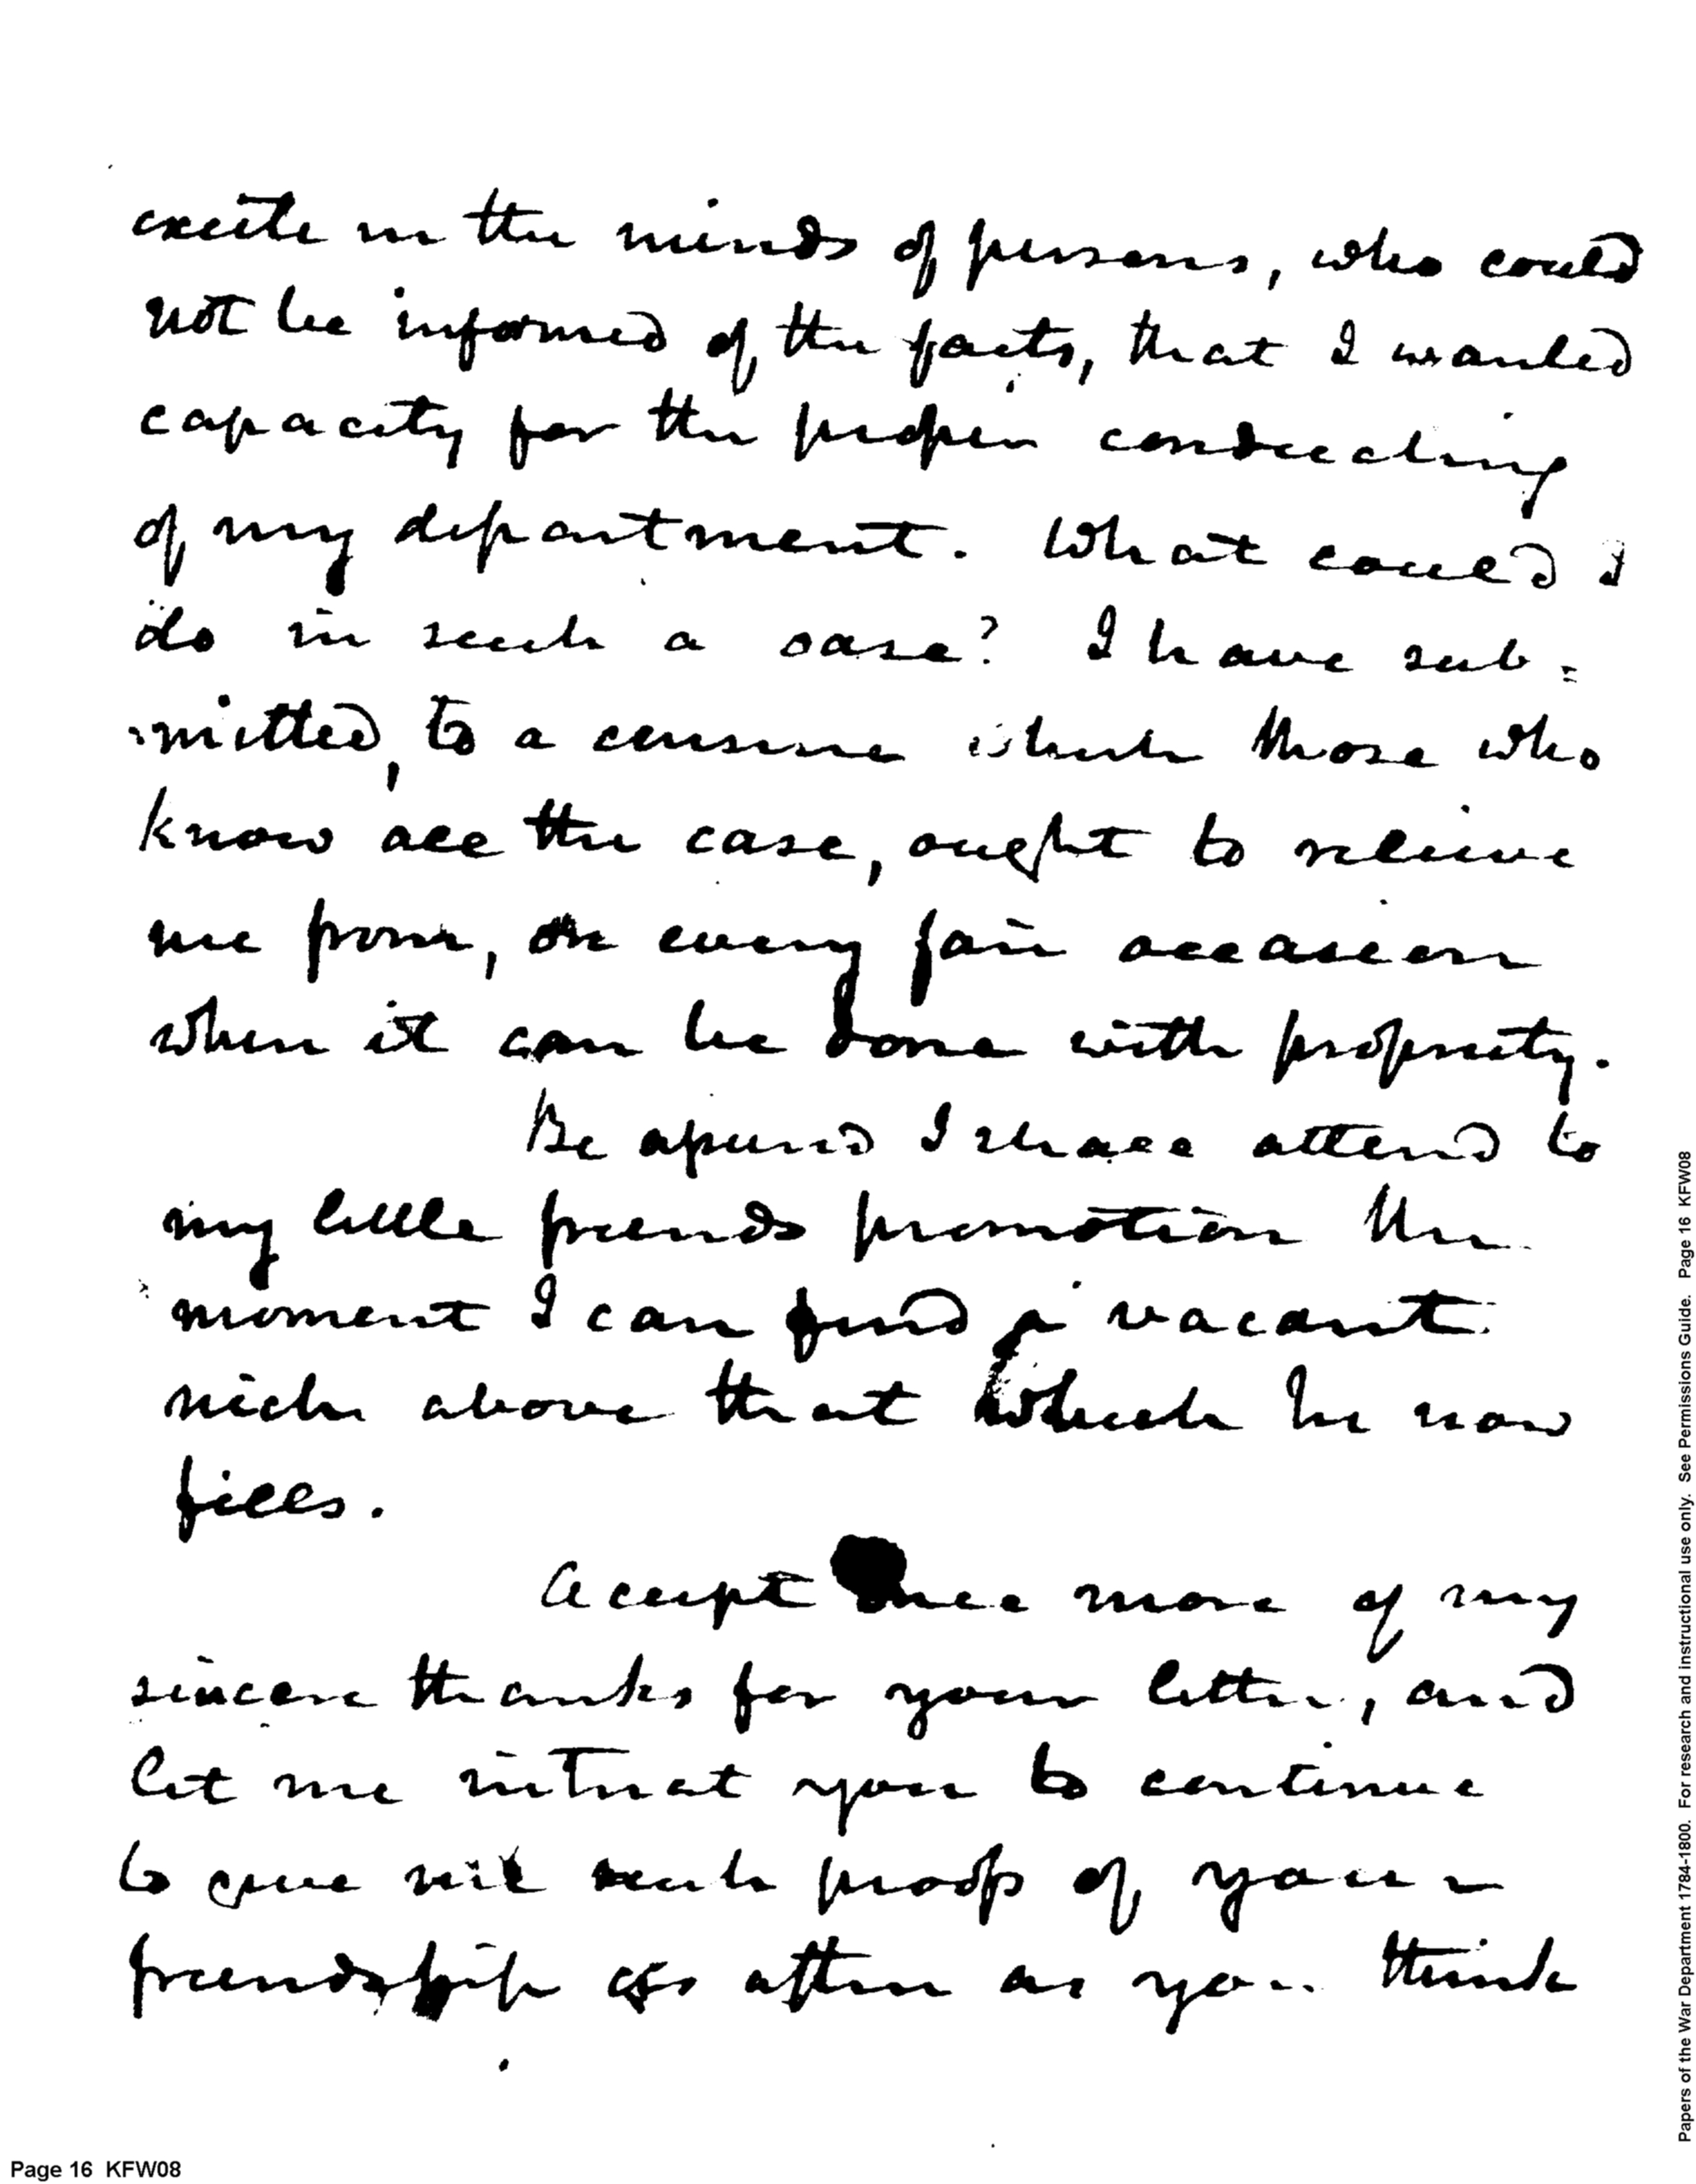 excite in the minds of persons, who could
not be informed of the facts, that I wanted
capacity for the proper conducting
of my department. What could I
do in such a case? I have sub=
=mitted, to a censure which those who
know all the case, ought to relieve
me from, on every fair occasion
when it can be done with propriety.
Be assured I shall attend to
my little friends promotion the
moment I can find a vacant
nich above that which he now
fills.
Accept once more of my
sincere thanks for your letter, and
let me intreat you to continue
to give me such proofs of your
friendship as often as you think
Page 16 KFW08
Papers of the War Department 1784-1800. For research and instructional use only. See Permissions Guide. Page 16 KFW08